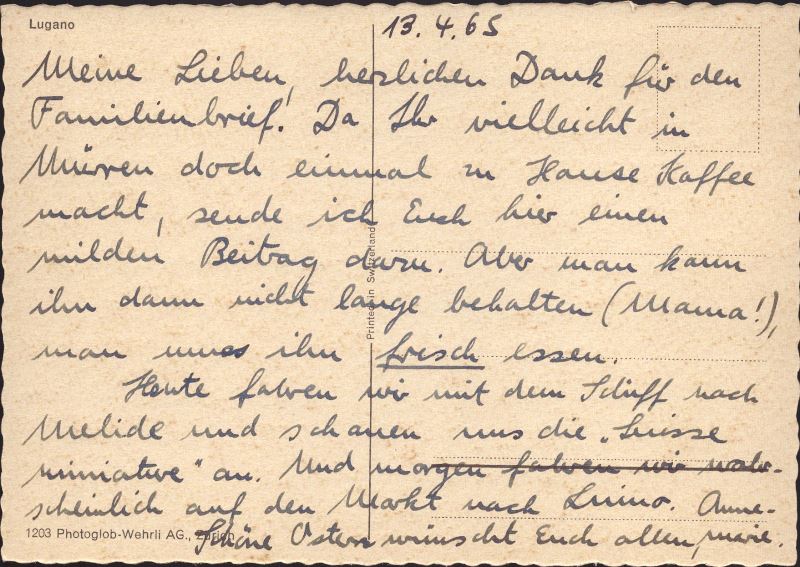 Lugano
13.4.65
Meine Lieben, herzlichen Dank für den
Familienbrief! Da Ihr vielleicht in
Mürren doch einmal zu Hause Kaffee
macht, sende ich Euch hier einen
milden Beitrag dazu. Aber man kann
ihn dann nicht lange behalten (Mama!),
man muss ihn frisch essen.
Heute fahren wir mit dem Schiff nach
Melide und schauen uns die „Suisse
miniature" an. Und morgen fahren wir wahr-
scheinlich auf den Markt nach Luino. Anne-
Schöne Ostern wünscht Euch allen, marie.
1203 Photoglob-Wehrli AG., Zürich
Printed in Switzerland